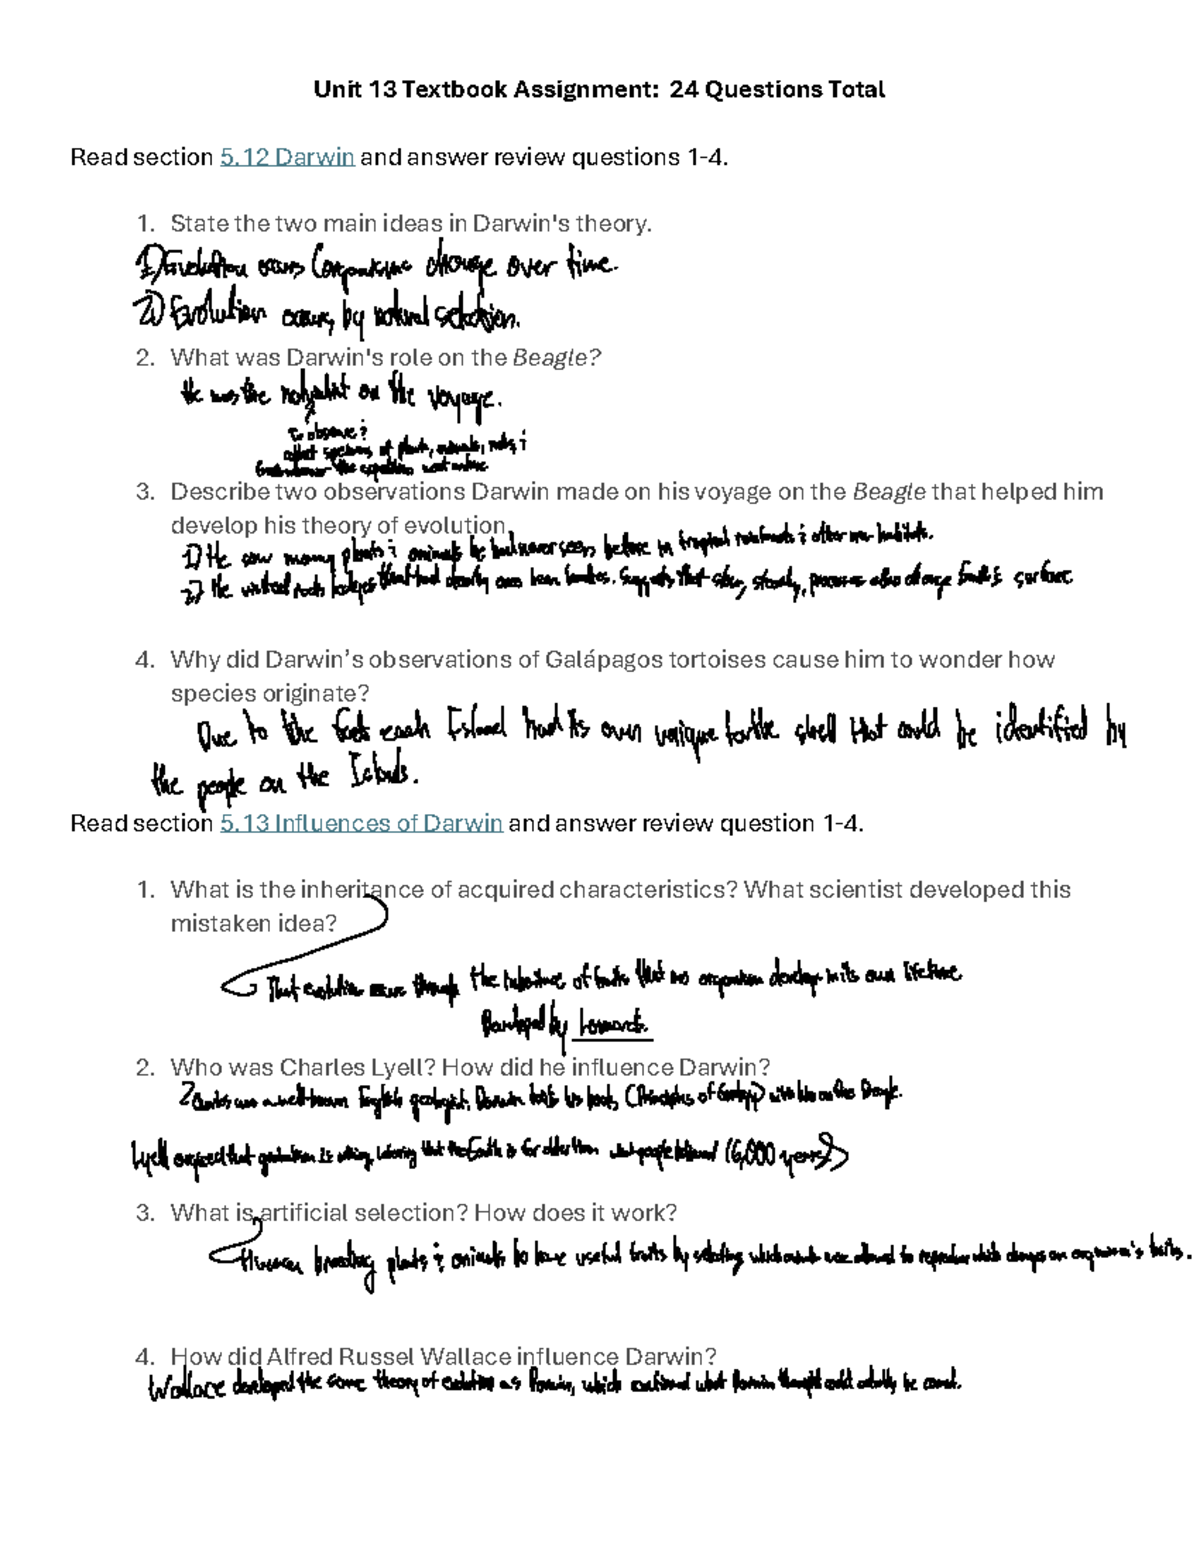 Unit 13 Textbook Assignment: 24 Questions Total
Read section 5.12 Darwin and answer review questions 1-4.
1. State the two main ideas in Darwin's theory.
1) Evolution occurs (organisms change over time.
2) Evolution occurs by natural selection.
2. What was Darwin's role on the Beagle?
He was the naturalist on the voyage.
To observe &
collect specimens of plants, animals, rocks, &
the expedition went
3. Describe two observations Darwin made on his voyage on the Beagle that helped him
develop his theory of evolution.
1) He saw many plants & animals he had never seen before in tropical rainforests & other new habitats.
2) He visited rocks that had clearly once been. Suggests that slow, steady, processes also change Earth's surface
4. Why did Darwin’s observations of Galápagos tortoises cause him to wonder how
species originate?
Due to the fact each Island had its own unique turtle shell that could be identified by
the people on the Islands.
Read section 5.13 Influences of Darwin and answer review question 1-4.
1. What is the inheritance of acquired characteristics? What scientist developed this
mistaken idea?
That evolution occurs through the inheritance of traits that an organism develops in its own lifetime
Developed by Lamarck.
2. Who was Charles Lyell? How did he influence Darwin?
was a well-known English geologist. Darwin took his book, (Principles of Geology) with him on the Beagle.
Lyell argued that gradualism is, that the Earth is far older than what people believed (6,000 years)
3. What is artificial selection? How does it work?
Humans breeding plants & animals to have useful traits by selecting which were allowed to reproduce which changes an organism's traits.
4. How did Alfred Russel Wallace influence Darwin?
Wallace developed the same theory of evolution as Darwin, which what Darwin thought could actually be correct.